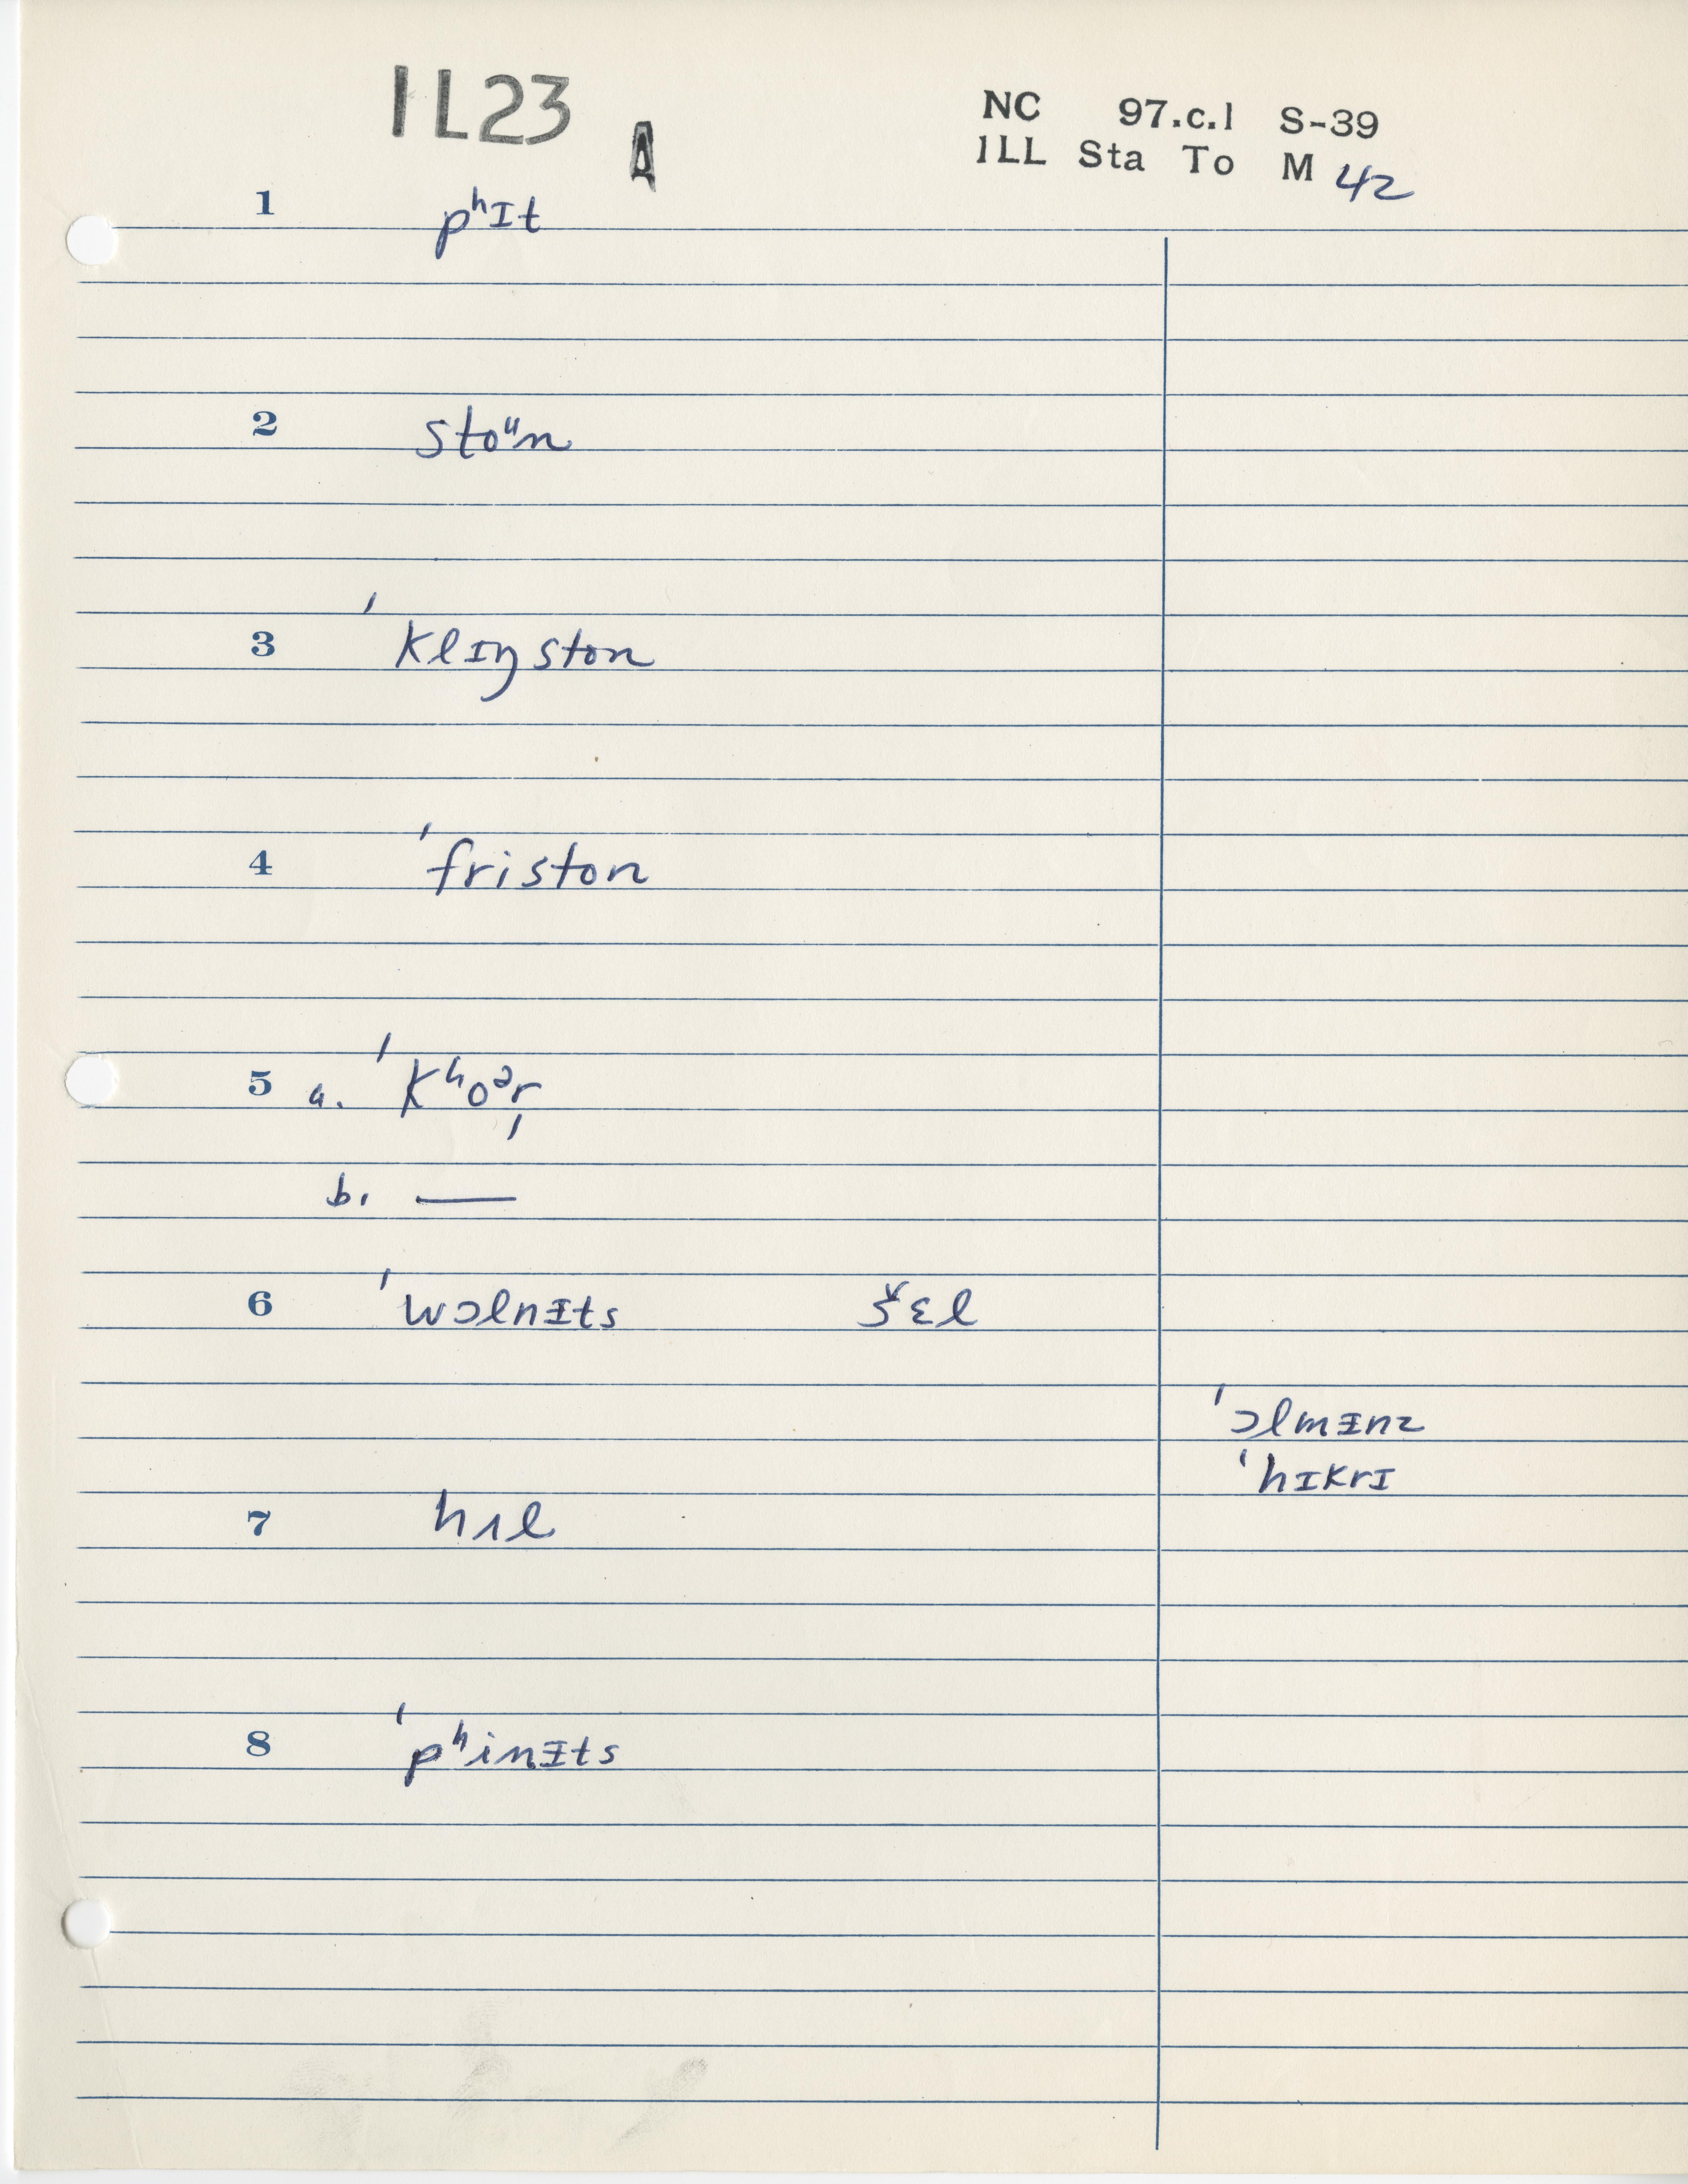 1L23 A
NC 97.c.1 S-39
ILL Sta To M 42
1 pʰɪt
2 stoᵘn
3 ˈklɪŋston
4 ˈfriston
5 a. ˈkʰoᵊr̩
b. —
6 ˈwɔlnᵻts š̌ɛl
ˈɔlmᵻnz
ˈhɪkrɪ
7 hɪl
8 ˈpʰinᵻts